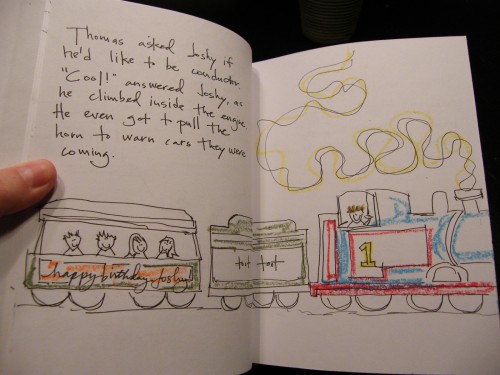 Thomas asked Joshy if
he'd like to be conductor.
"Cool!" answered Joshy, as
he climbed inside the engine
He even got to pull the
horn to warn cars they were
coming.
happy birthday Joshy!
toot toot
1